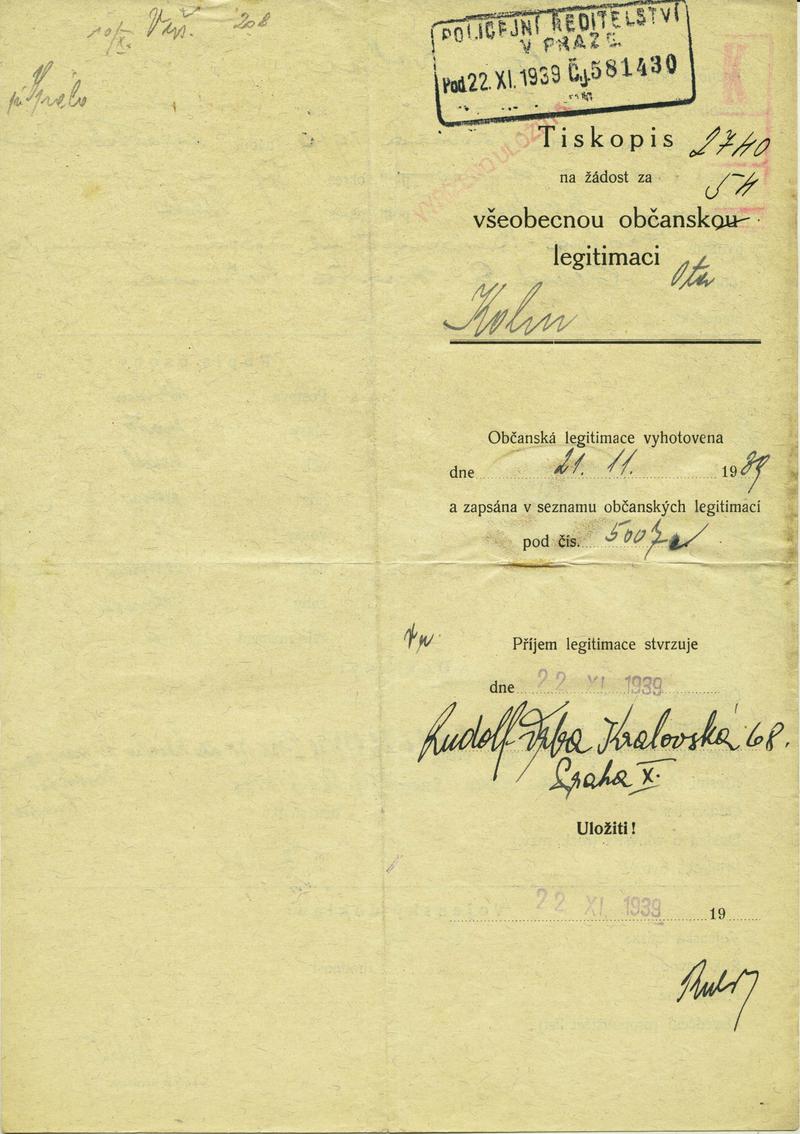 208
POLICEJNÍ ŘEDITELSTVÍ
V PRAZE
Pod 22. XI. 1939 Čj. 581430
K
Tiskopis 2740
na žádost za 54
všeobecnou občanskou
legitimaci
Ota
Kohn
Občanská legitimace vyhotovena
dne 21. 11. 1939
a zapsána v seznamu občanských legitimací
pod čís. 5007
Příjem legitimace stvrzuje
dne 22 XI 1939
Rudolf Vrba Kralovská 68.
Praha X.
Uložiti!
22 XI 1939 19